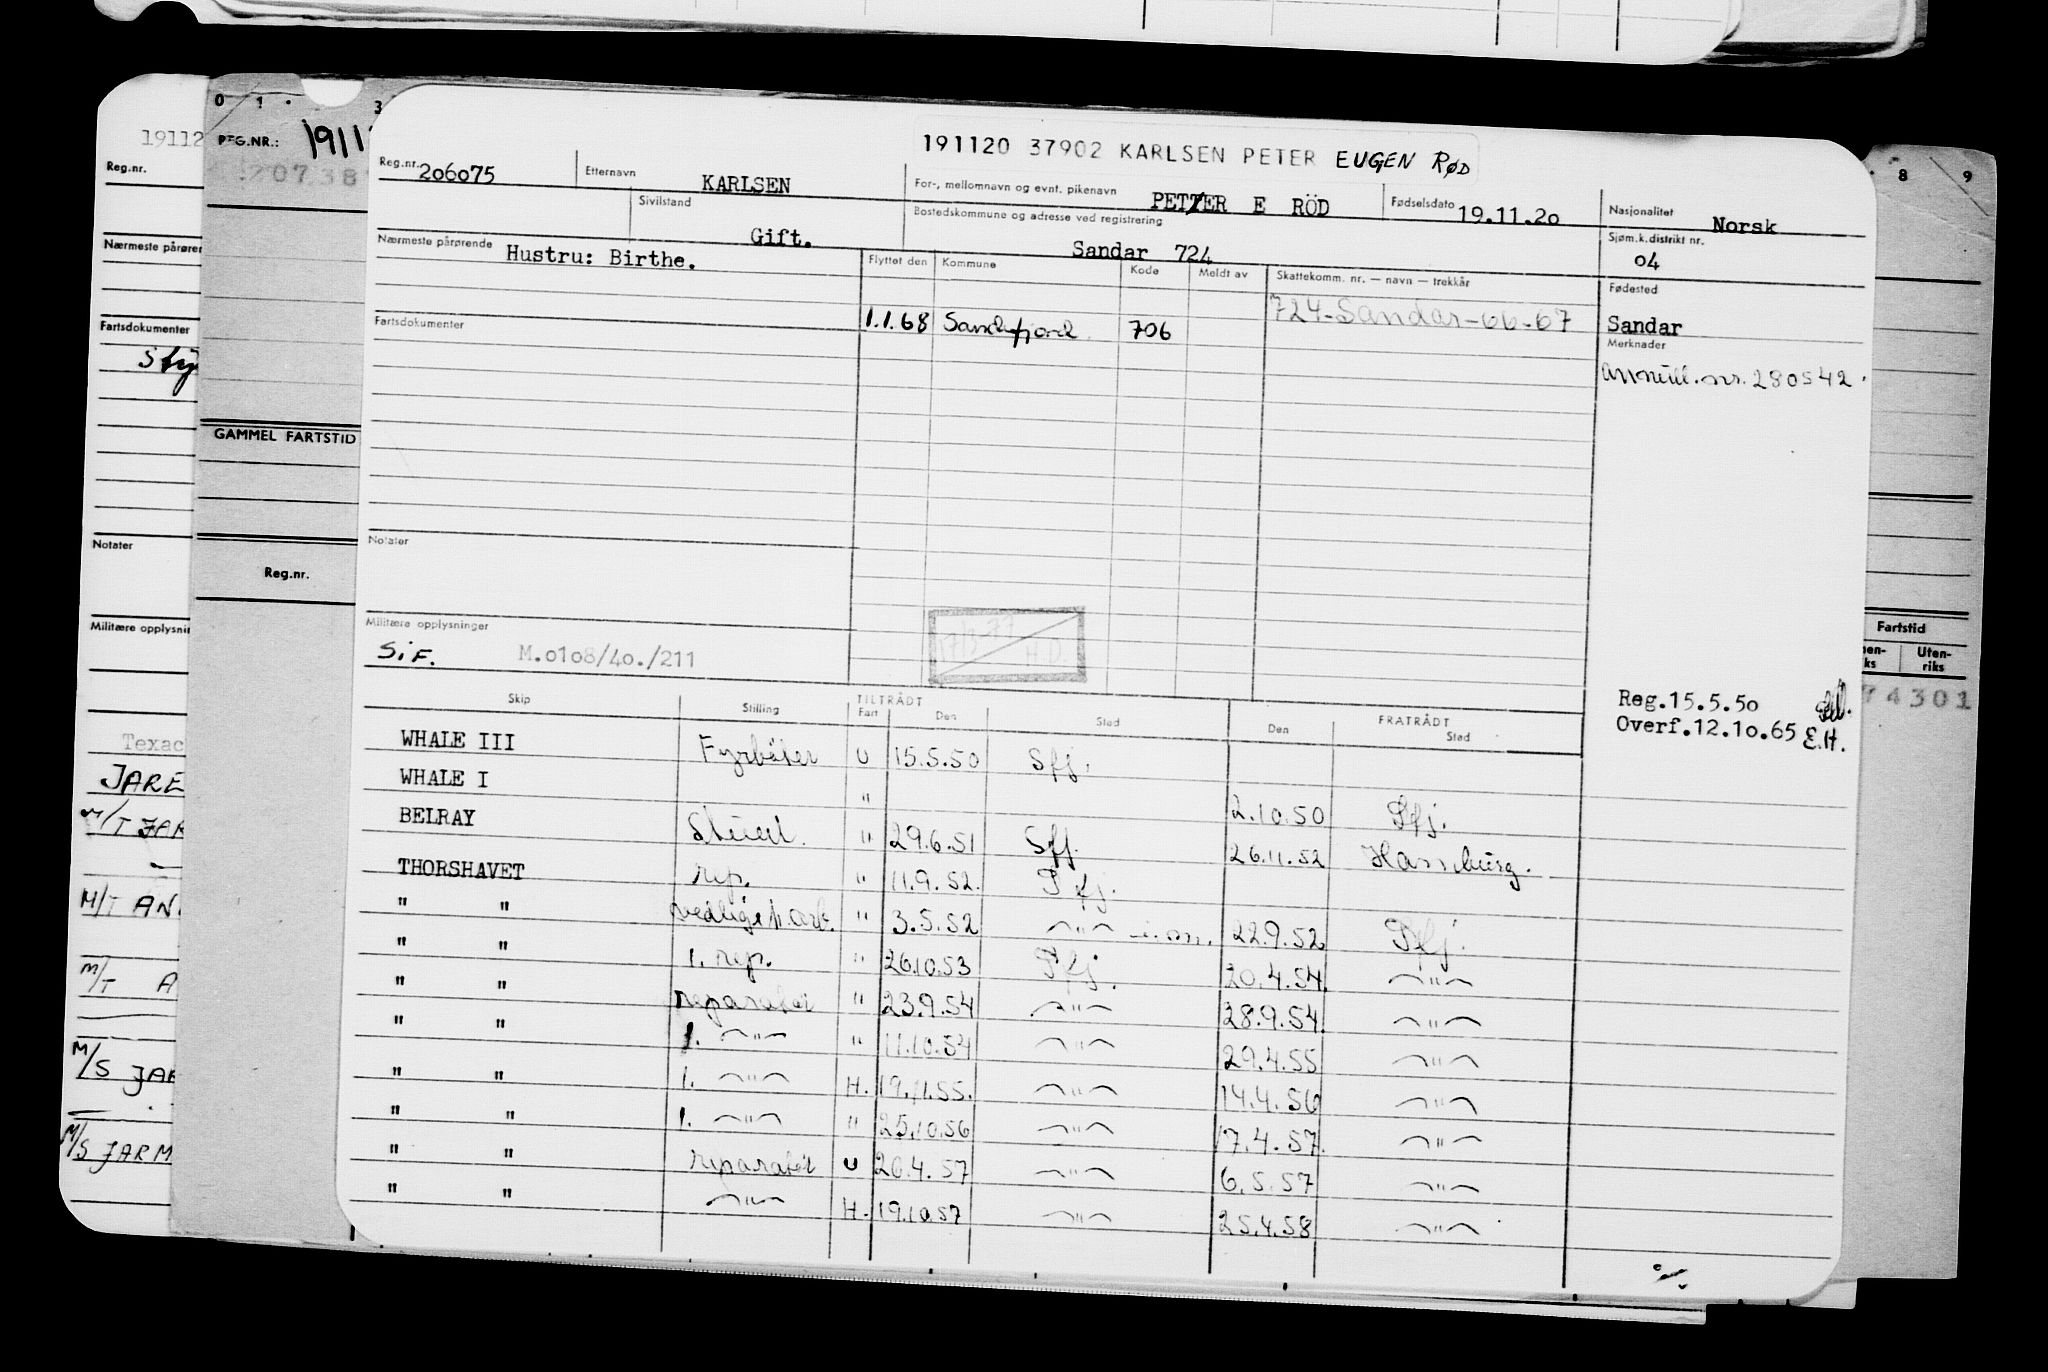 0 1 . 3
8 9
19112
REG.NR.: 1911
20738
Reg.nr.
Nærmeste pårører
Fartsdokumenter
GAMMEL FARTSTID
Notater
Reg.nr.
Militære opplysnin
Texac
JARE
M/T JAR
M/T AN
M/T A
M/S JAR
M/S JARM
191120 37902 KARLSEN PETER EUGEN RØD
Reg.nr. 206075 Etternavn KARLSEN For-, mellomnavn og evnt. pikenavn PETER E RÖD Fødselsdato 19.11.20 Nasjonalitet Norsk
Sivilstand Gift. Bostedskommune og adresse ved registrering Sandar 724 Sjøm.k.distrikt nr. 04
Nærmeste pårørende Hustru: Birthe. Flyttet den Kommune Kode Meldt av Skattekomm. nr. — navn — trekkår Fødested
724-Sandar-66-67 Sandar
Fartsdokumenter 1.1.68 Sandefjord 706 Merknader
Annull. nr. 280542.
Notater
Militære opplysninger
S.F. M.0108/40./211
17/3-77 H.D.
Reg.15.5.50
Overf.12.10.65 E.H.
Fartstid
Uten-
riks
74301
Skip Stilling TILTRÅDT FRATRÅDT
Fart Den Sted Den Sted
WHALE III Fyrbøter U 15.5.50 Sfj.
WHALE I " 2.10.50 Sfj.
BELRAY Stuert. " 29.6.51 Sfj. 26.11.52 Hamburg.
THORSHAVET rep. " 11.9.52. Sfj.
" " vedligeh.arb. " 3.5.52 " 22.9.52 Sfj.
" " 1. rep. " 26.10.53 Sfj. 20.4.54. "
" " reparatør " 23.9.54 " 28.9.54. "
" " 1. " " 11.10.54 " 29.4.55 "
" " 1. " H. 19.11.55. " 14.4.56 "
" " 1. " " 25.10.56 " 17.4.57. "
" " reparatør U 20.4.57 " 6.5.57 "
" " " H. 19.10.57 " 25.4.58 "